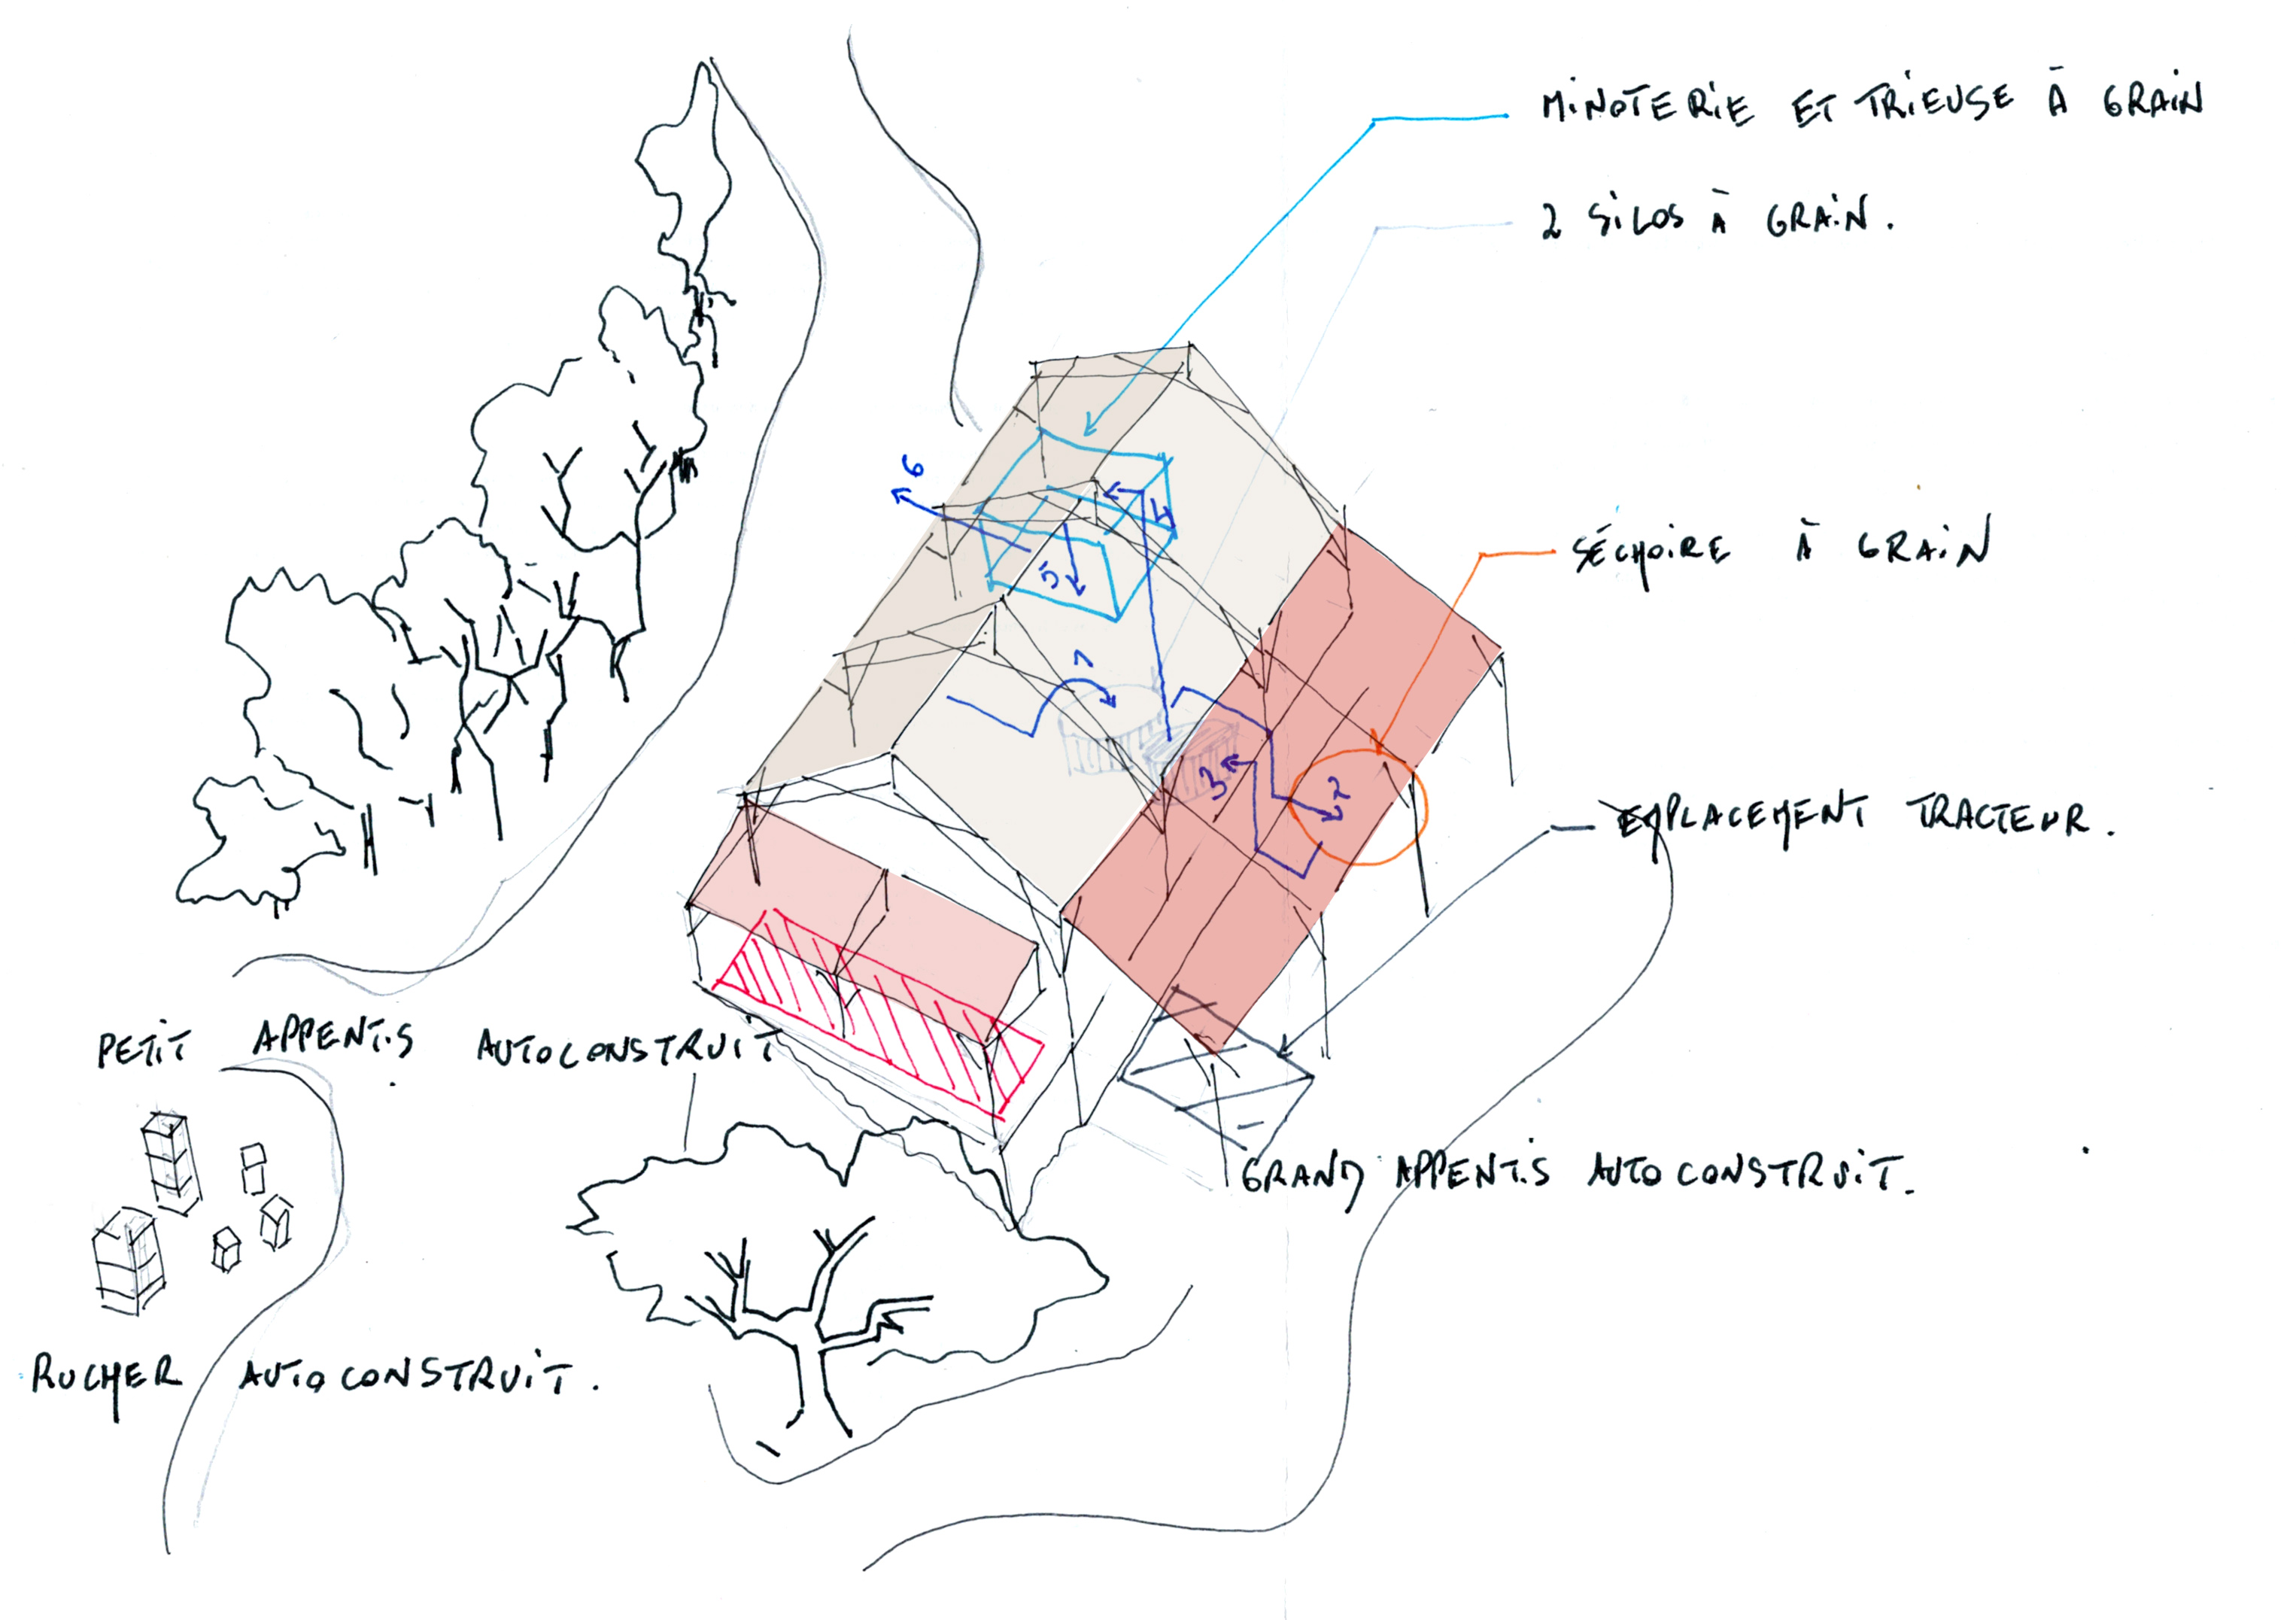 MINOTERIE ET TRIEUSE À GRAIN
2 SILOS À GRAIN.
SÉCHOIRE À GRAIN
EMPLACEMENT TRACTEUR.
GRAND APPENTIS AUTOCONSTRUIT.
PETIT APPENTIS AUTOCONSTRUIT
RUCHER AUTOCONSTRUIT.
6
4
5
1
3
2